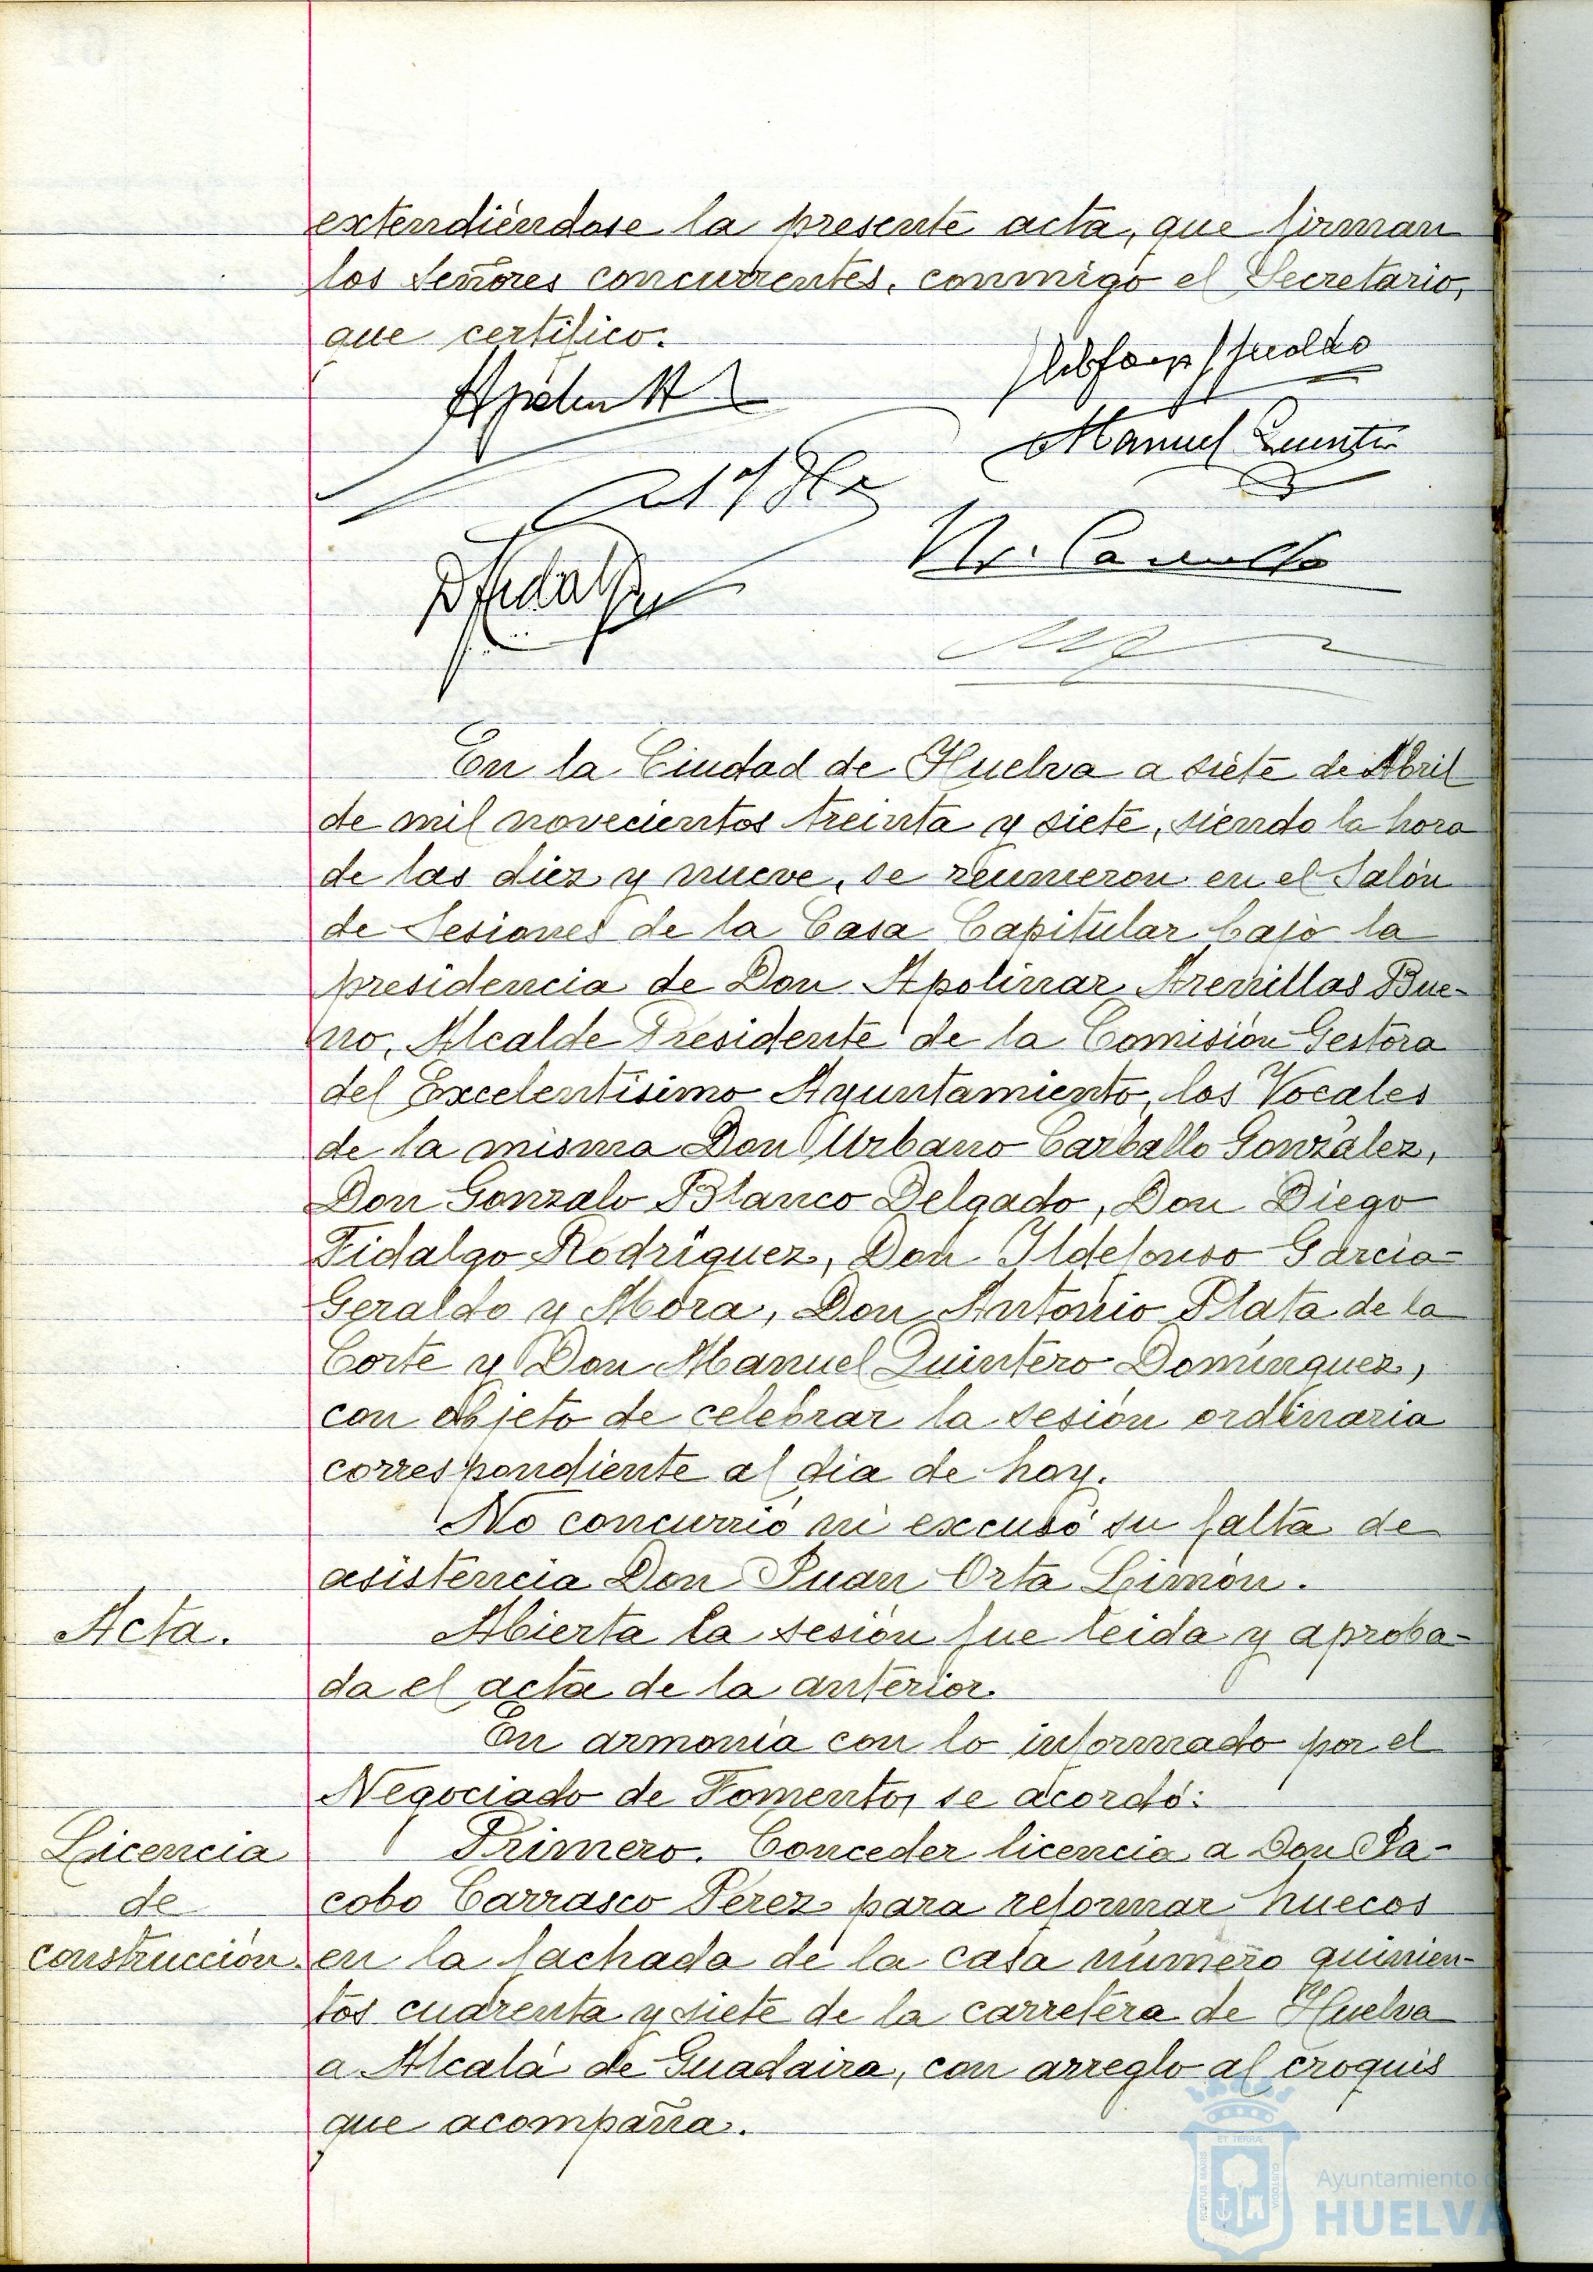 extendiéndose la presente acta, que firman
los Señores concurrentes, conmigo el Secretario,
que certifico.
Manuel Quintero
D Fidalgo
U. Carballo
En la Ciudad de Huelva a siete de Abril
de mil novecientos treinta y siete, siendo la hora
de las diez y nueve, se reunieron en el Salón
de Sesiones de la Casa Capitular bajo la
presidencia de Don Apolinar Arenillas Bue-
no, Alcalde Presidente de la Comisión Gestora
del Excelentísimo Ayuntamiento, los Vocales
de la misma Don Urbano Carballo González,
Don Gonzalo Blanco Delgado, Don Diego
Fidalgo Rodríguez, Don Ildefonso Garcia-
Geraldo y Mora, Don Antonio Plata de la
Corte y Don Manuel Quintero Domínguez,
con objeto de celebrar la sesión ordinaria
correspondiente al dia de hoy.
No concurrió ni excusó su falta de
asistencia Don Juan Orta Limón.
Acta.
Abierta la sesión fue leida y aproba-
da el acta de la anterior.
En armonía con lo informado por el
Negociado de Fomento, se acordó:
Licencia
de
construcción.
Primero. Conceder licencia a Don Ja-
cobo Carrasco Pérez para reformar huecos
en la fachada de la casa número quinien-
tos cuarenta y siete de la carretera de Huelva
a Alcalá de Guadaira, con arreglo al croquis
que acompaña.
PORTUS MARIS
ET TERRÆ
CUSTODIA
Ayuntamiento de
HUELVA